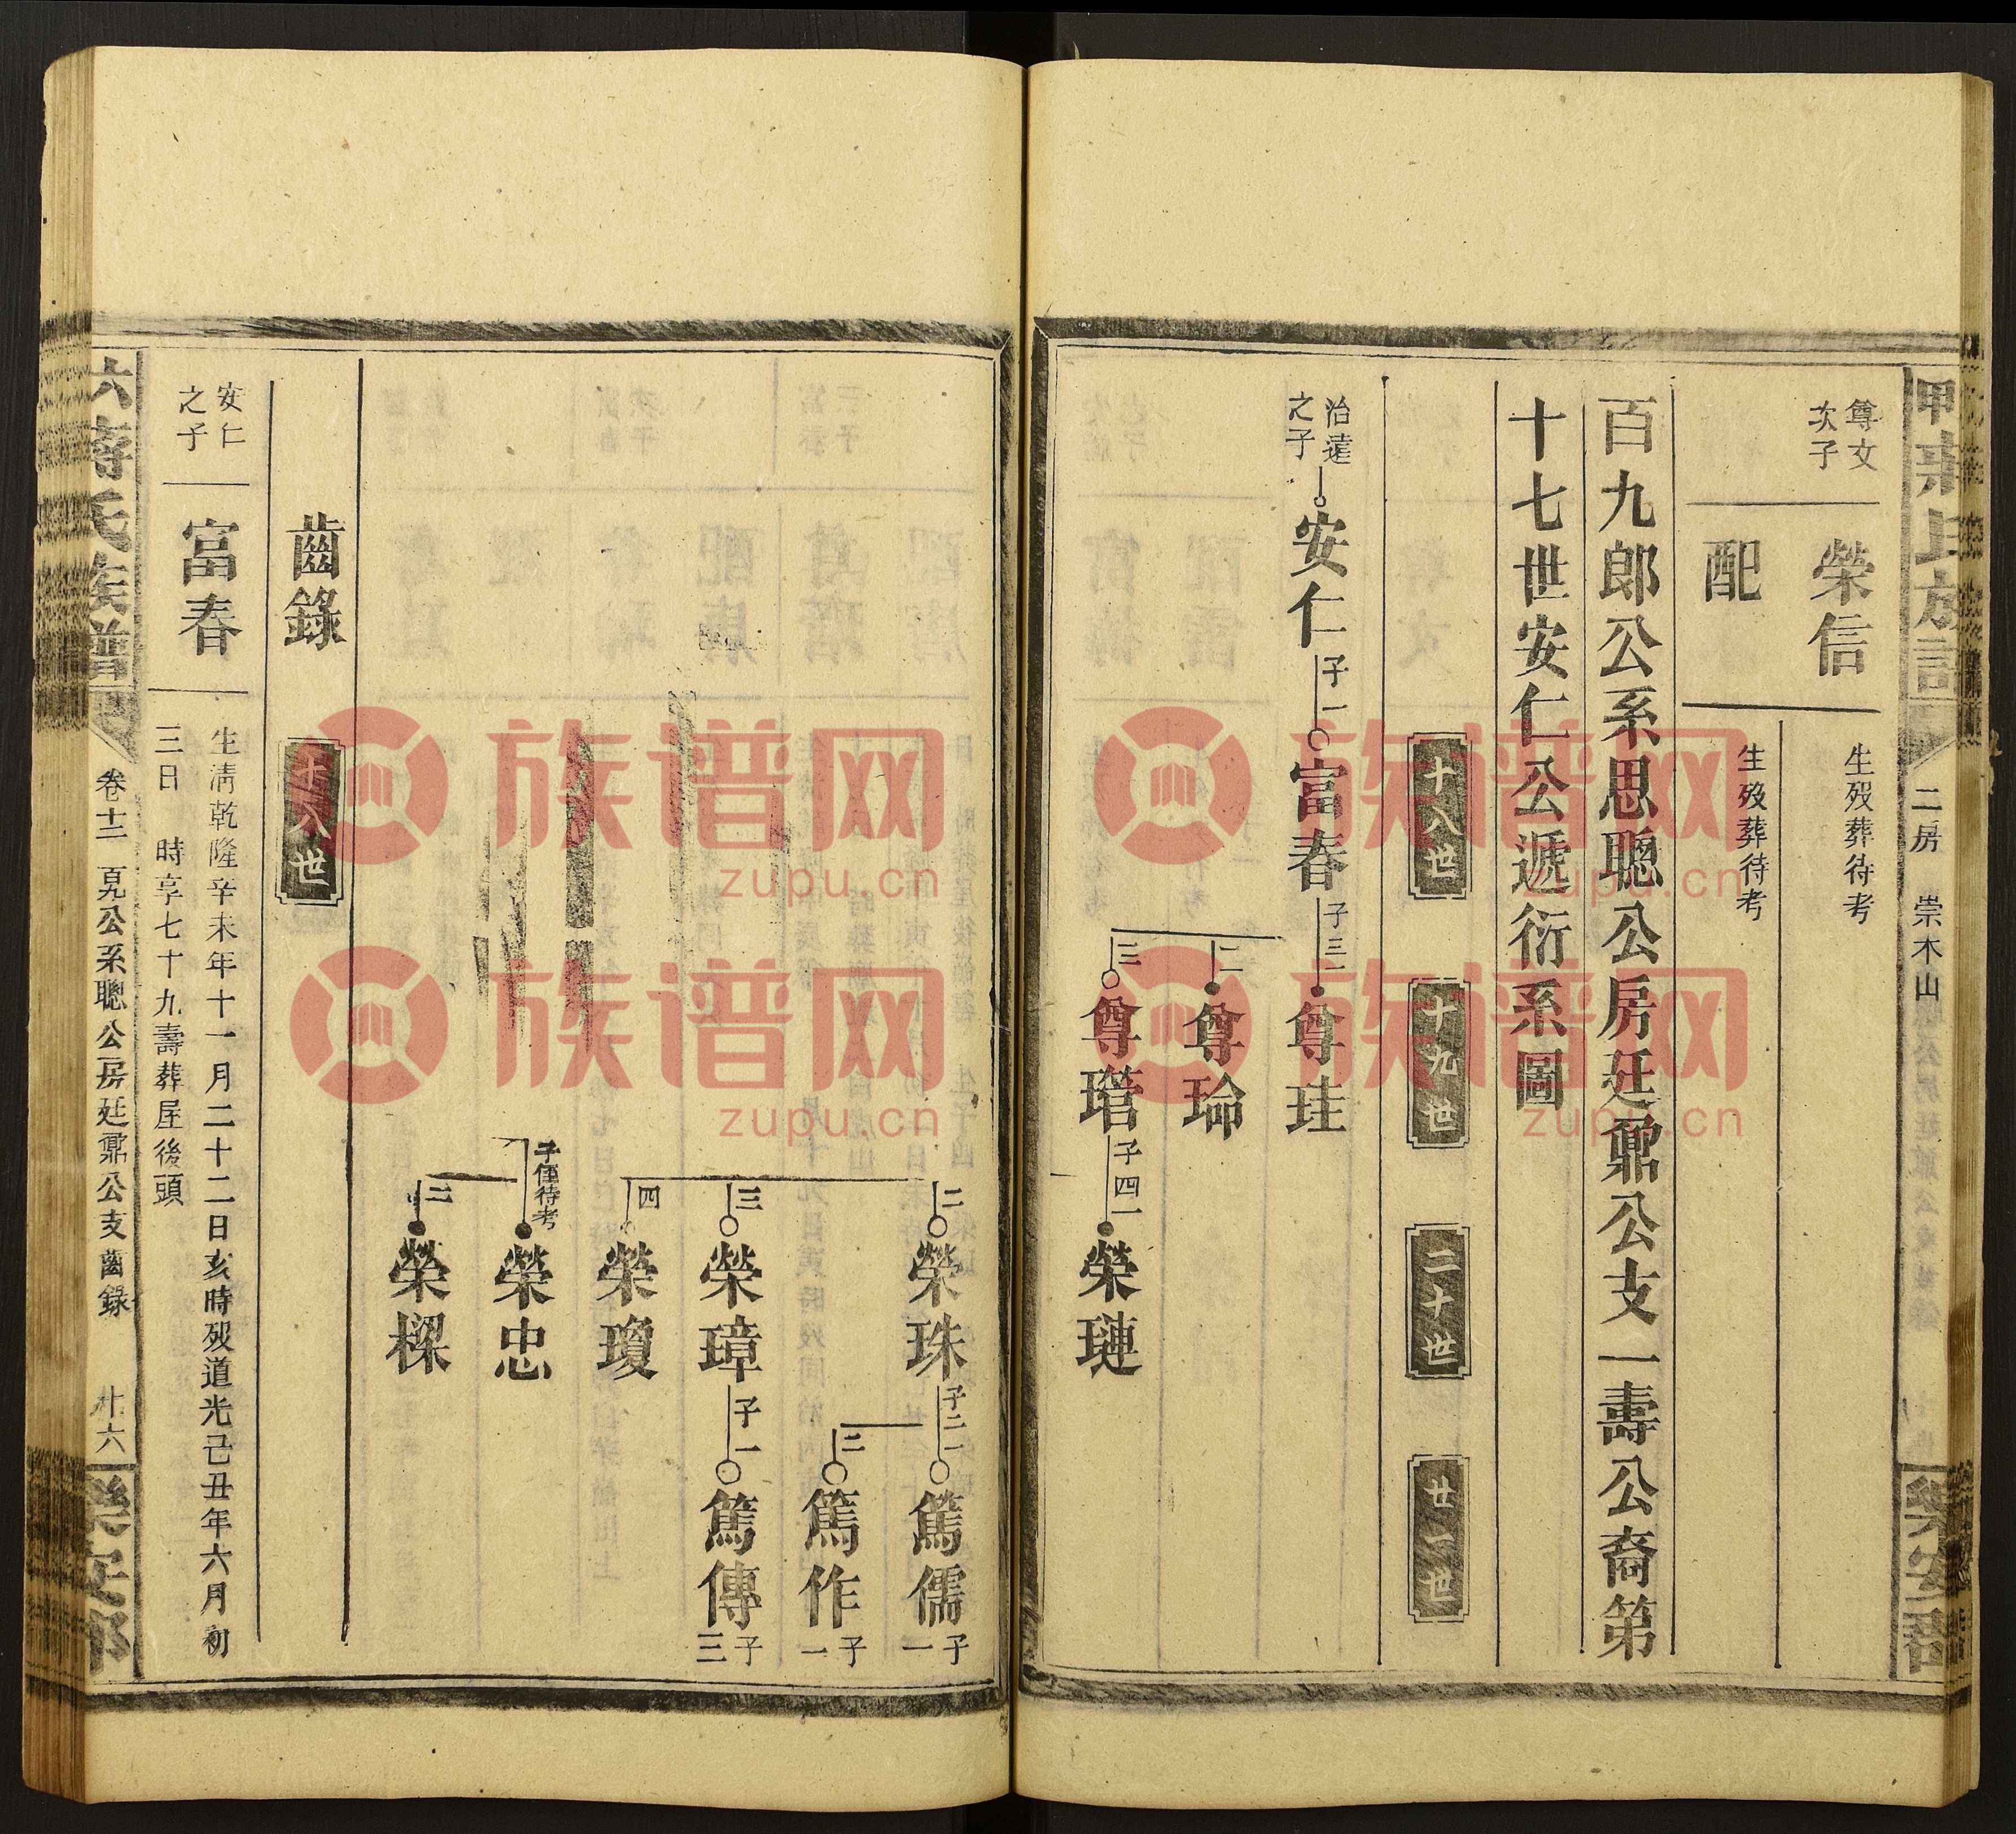 二房　崇木山
尊文
次子
榮信
生歿葬待考
配
生歿葬待考
百九郎公系思聰公房廷鼐公支一壽公裔第
十七世安仁公遞衍系圖
十八世
十九世
二十世
廿一世
治遠
之子
安仁
子一
富春
子三一
尊珪
二
尊瑜
三
尊瑻
子四一
榮璉
二
榮珠
子二一
篤儒
子一
二
篤作
子一
三
榮璋
子一
篤傳
子三
四
榮瓊
子僅待考
榮忠
二
榮樑
齒錄
十八世
安仁
之子
富春
生清乾隆辛未年十一月二十二日亥時歿道光己丑年六月初
三日　時享七十九壽葬屋後頭
氏族譜
卷十二　百九公系聰公房廷鼐公支齒錄
十六
樂安郡
族谱网
zupu.cn
族谱网
zupu.cn
族谱网
zupu.cn
族谱网
zupu.cn